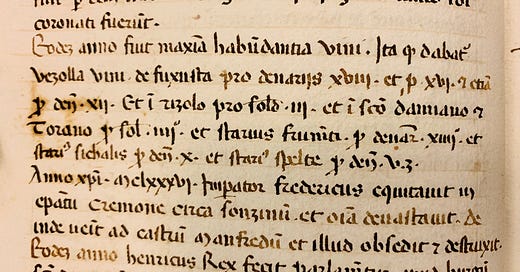 coronati fuerūt.
Eodē anno fuit maxīa habūdantia vini. Ita qd dabat᷑
vezolla vini de fuxusta pro denarijs xviii. et ꝑ xvi. ⁊ etiā
ꝓ den̄. xii. Et ī rizolo pro sold. iii. et ī sc̄o damiano ⁊
Torano ꝓ sol. iiij. et starius frum̄ti. ꝓ denar̄. xiiij. et
stariꝰ sichalis ꝓ den̄. x. et stariꝰ spelte ꝓ den̄. v. z.
Anno xp̄i. mclxxxvi. Imꝑator fredericus equitauit in
ep̄atū Cremone circa sonzinū. et oīa deuastauit. De
inde ueīt ad castrū manfredū et illud obsedit ⁊ destruxit.
Eodez anno henricus Rex fecit parlam̄tuȝ